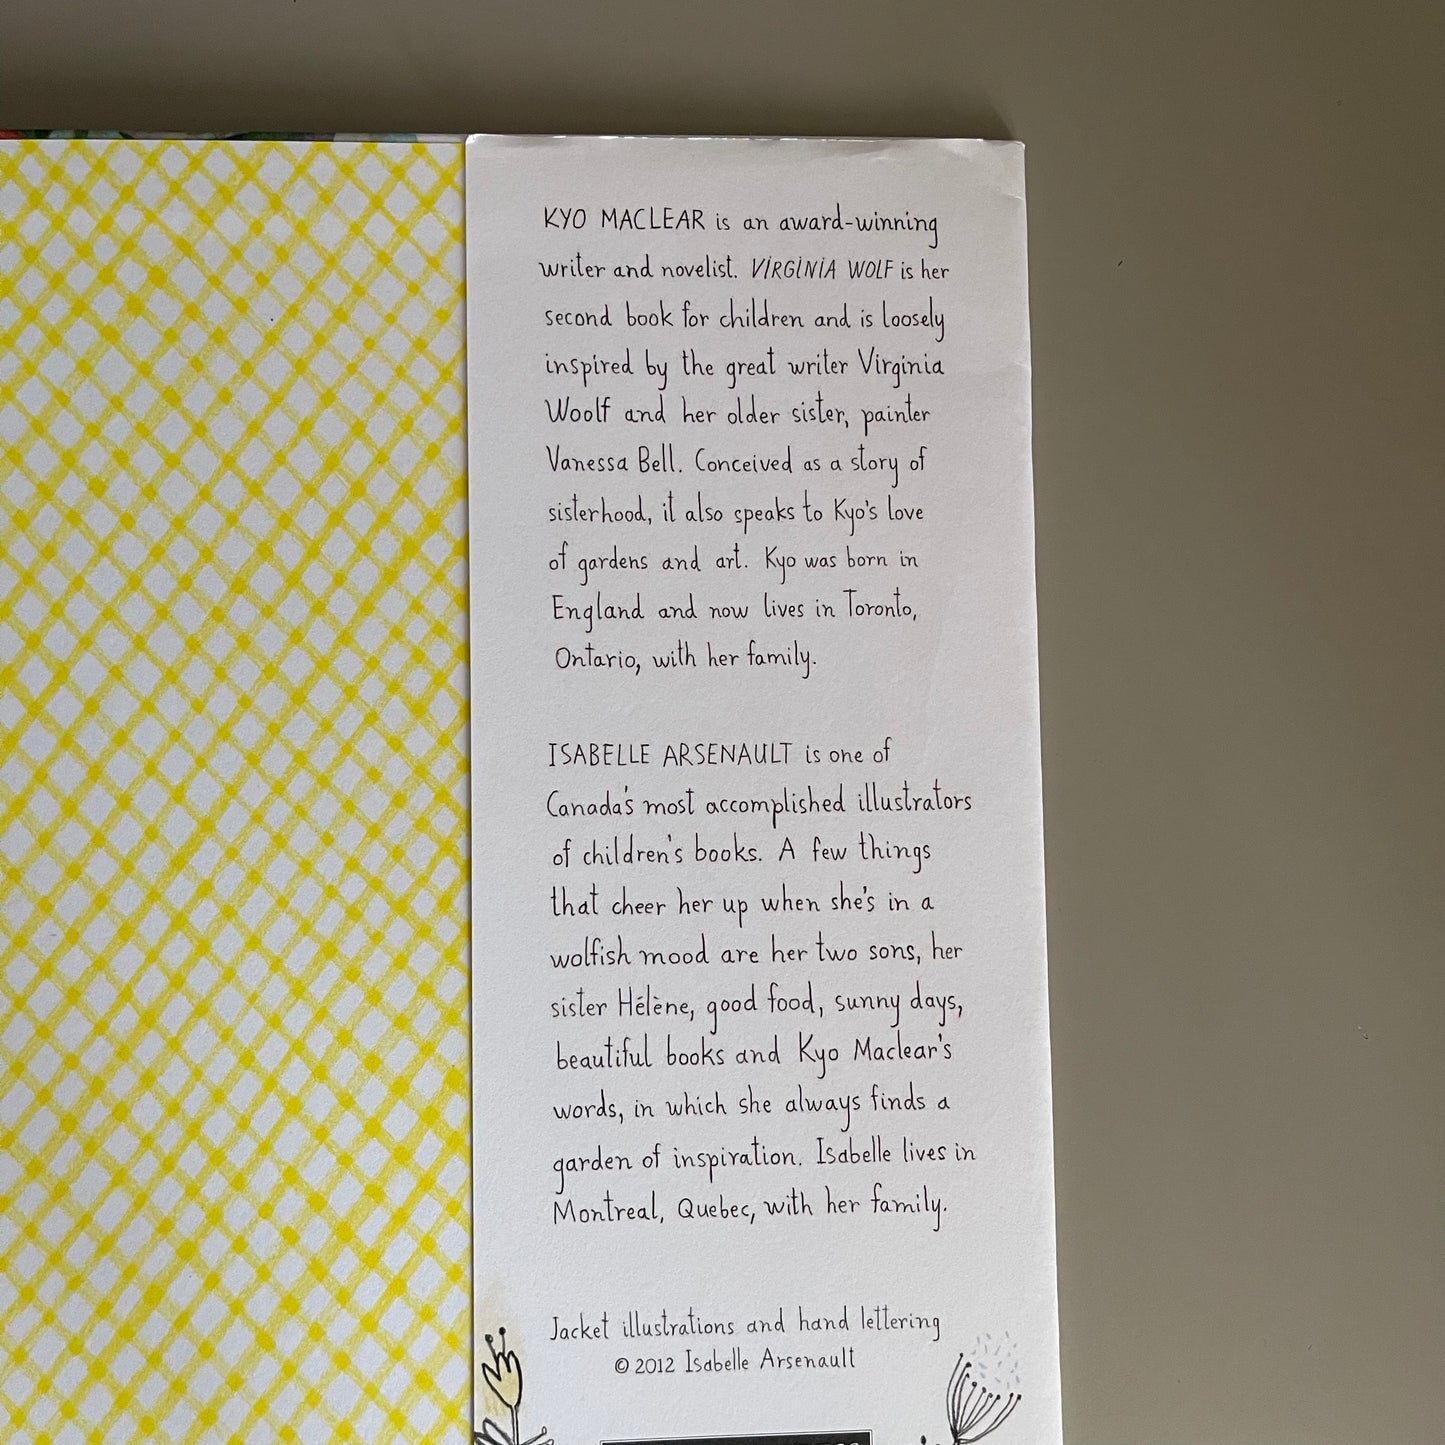 KYO MACLEAR is an award-winning
writer and novelist. VIRGINIA WOLF is her
second book for children and is loosely
inspired by the great writer Virginia
Woolf and her older sister, painter
Vanessa Bell. Conceived as a story of
sisterhood, it also speaks to Kyo's love
of gardens and art. Kyo was born in
England and now lives in Toronto,
Ontario, with her family.
ISABELLE ARSENAULT is one of
Canada's most accomplished illustrators
of children's books. A few things
that cheer her up when she's in a
wolfish mood are her two sons, her
sister Hélène, good food, sunny days,
beautiful books and Kyo Maclear's
words, in which she always finds a
garden of inspiration. Isabelle lives in
Montreal, Quebec, with her family.
Jacket illustrations and hand lettering
© 2012 Isabelle Arsenault